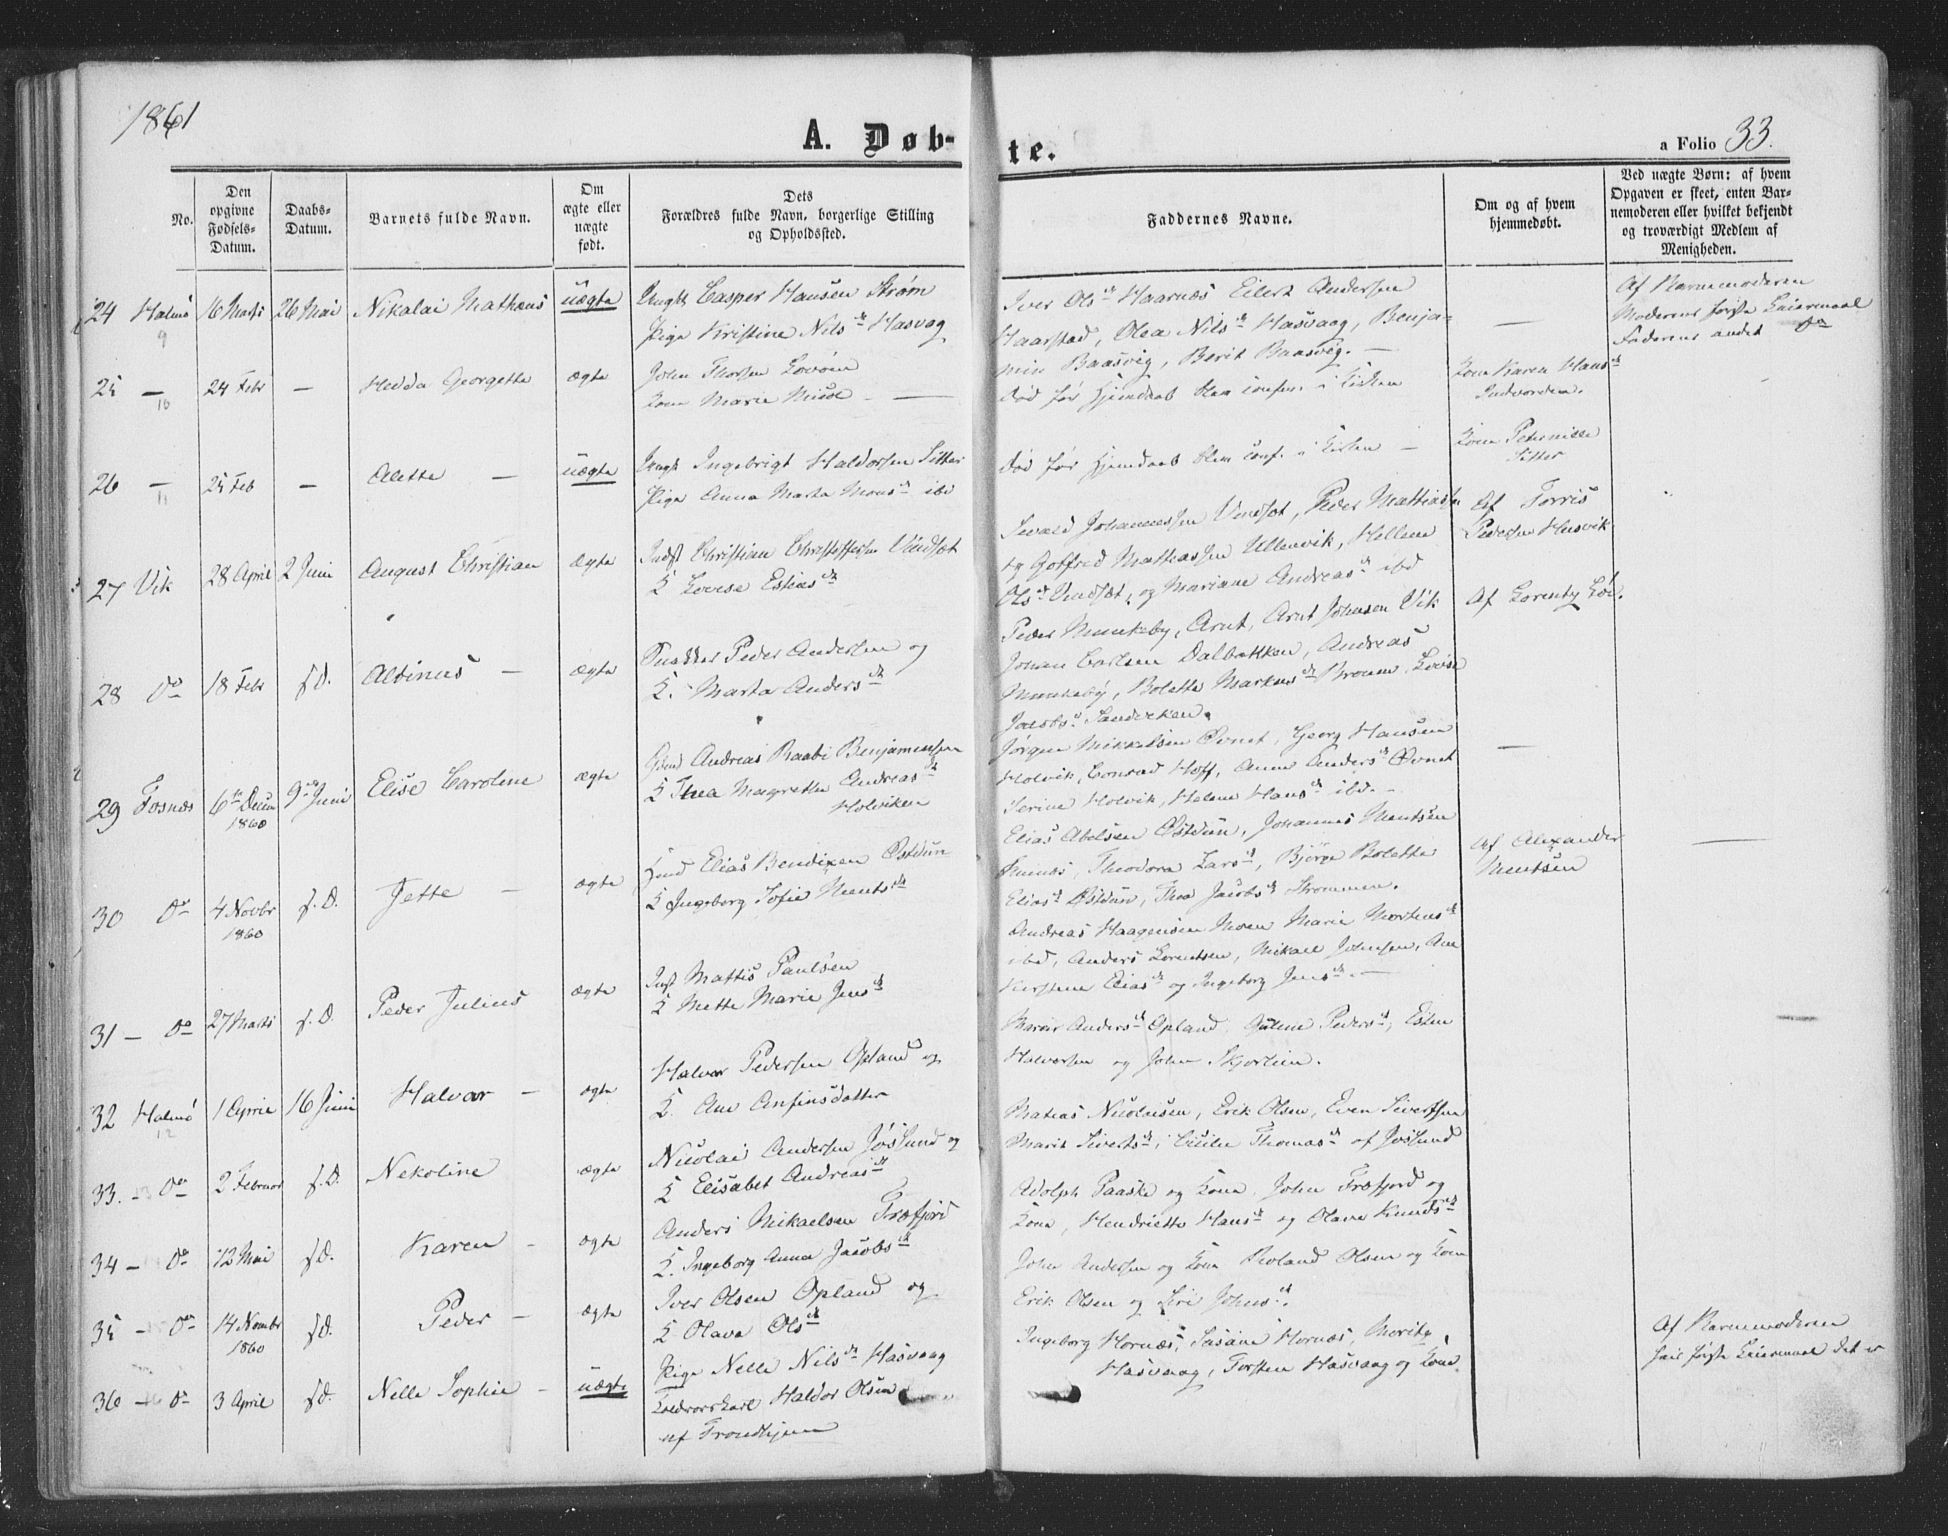 1861
A. Døb-
te.
a Folio 33.
No.
Den
opgivne
Fødsels-
Datum.
Daabs-
Datum.
Barnets fulde Navn.
Om
ægte eller
uægte
født.
Dets
Forældres fulde Navn, borgerlige Stilling
og Opholdssted.
Faddernes Navne.
Om og af hvem
hjemmedøbt.
Ved uægte Børn: af hvem
Opgaven er skeet, enten Bar-
nemoderen eller hvilket bekjendt
og troværdigt Medlem af
Menigheden.
24 Halmø 16 Marts 26 Mai Nikalai Mathæus uægte Ungk Casper Hansen Strøm
9
Pige Kristine Nils dr Hasvag
Iver Ols dr Haarnæs Eilert Andersen
Haarstad, Olea Nils dr Hasvaag, Benja-
min Baasvig, Berit Baasvig. —
—
Af Barnemoderen
Moderens første Leiermaal
Faderens andet Do
25 — 24 Febr — Hedda Georgette ægte John Thorsen
10
Kone Marie — —
Død før Hjemdaab blev conf. i Kirken
Kone Karen Hans dr
Indvorden.
26 — 25 Feb — Alette — uægte Ungk Ingebrigt Haldorsen Sitter
11
Pige Anna Marta Mons dr ibd
Død før Hjemdaab blev conf. i Kirken —
Kone Peternille
Sitter
27 Vik 28 April 2 Juni August Christian ægte Indst Christian Christoffersen Vindsæt
K Lovise Esties dr
Sivald Johannessen Vindsæt, Peder Mattiassen
og Gotfred Mathiassen Ullenvik, Hellene
Ols dr Vindsæt, og Mariane Andreas dr ibd
Af Torris
Pedersen Husvik
28 Do 18 Febr s.D. Albinus — ægte Peder Andersen og
K. Marta Anders dr
Peder Munkeby, Arnt, Arnt Johnsen Vik
Johan Carlsen Dalbakken, Andreas
Munkeby, Bolette Markus dr Lovise
Jacobs d Sandviken.
Af Lorents
29 Fosnæs 6te Decem 9de Juni Elise Caroline ægte Gmd Andreas Raabi Benjaminsen
1860
K Thea Magrethe Andreas dr
Holviken
Jørgen Mikkelsen Øvnet, Georg Hansen
Holvik, Conrad Hoff, Anne Anders dr Øvnet
Serine Holvik, Helene Hans dr ibd. —
—
30 Do 4 Novbr s.D. Jette — ægte Elias Bendixen Østdun
1860
K Ingeborg Sofie Ments dr
Elias Abelsen Østdun, Johannes Mentsen
Theodora Lars dr, Bolette
Elias dr Østdun, Thea Jacobs dr Strømmen.
Af Alexander
Mentsen
—
31 — Do 27 Marts s.D. Peder Julius ægte Inst Mattis Paulsen
K Mette Marie Jens dr
Andreas Haagensen Moen Marie Mortens dr
ibd, Anders Lorentsen, Mikael Johnsen, Ane
Kirstine Elias dr og Ingeborg Jens dr —
32 Halmø 1 April 16 Juni Halvar — ægte Halvor Pedersen Opland og
12
K. Ane Anfinsdatter
Anders dr Opland, Peders dr, Esten
Halvorsen og John Skjerlien.
33. — Do 2 Februar s.D. Nekoline ægte Nicolai Andersen Jøssund og
13
K Elisabet Andreas dr
Matias Nicolaisen, Erik Olsen, Even Sivertsen
Marit Siverts dr, Cicilie Thomas dr af Jøssund
34 — Do 12 Mai s.D. Karen — ægte Anders Mikaelsen Træfjord
K. Ingeborg Anna Jacobs dr
Adolph Paaske og Kone, John Træfjord og
Kone, Hendriette Hans dr og Olava Knuds dr
35 — Do 14 Novembr s.D. Peder — ægte Iver Olsen Opland og
1860
K Olava Ols dr
John Andersen og Kone Roland Olsen og Kone
Erik Olsen og Siri Johns dr.
36 — Do 3 April s.D. Nelle Sophie — uægte Pige Nelle Nils dr Hasvaag
Haldor Olsen
af Trondhjem
Ingeborg Hornæs, Susane Hornæs,
Hasvaag, Torsten Hasvaag og Kone.
Af Barnemoderen
første Leiermaal